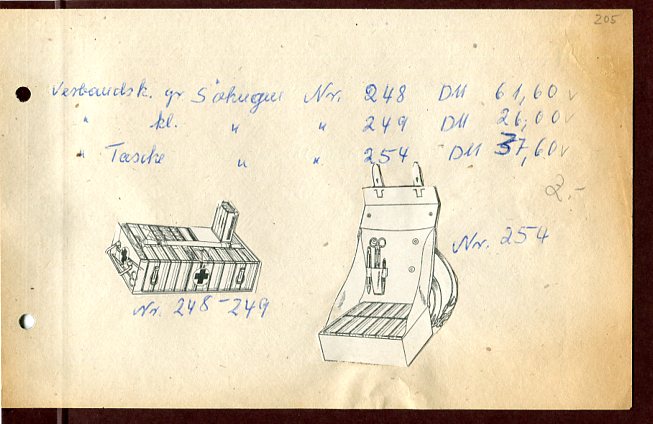 205
Verbandsk. gr Nr. 248 DM 61,60 v
" kl. " " 249 DM 26,00 v
" Tasche " " 254 DM 37,60 v
2.-
Nr. 254
Nr. 248-249